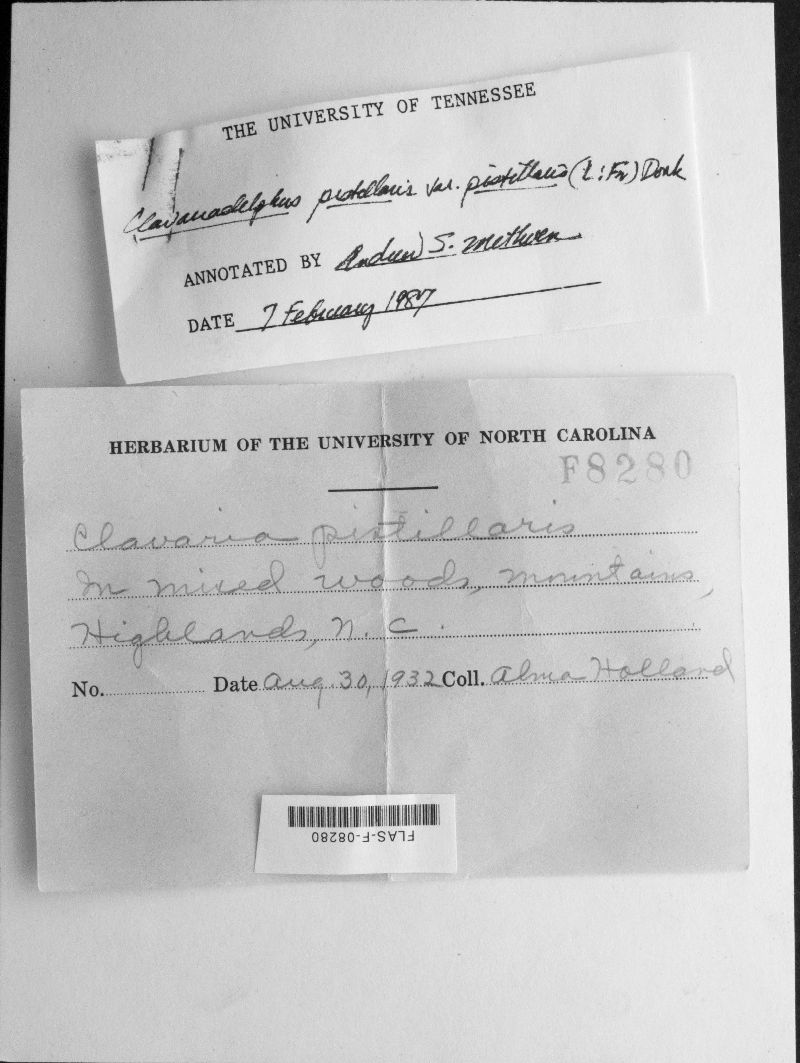 THE UNIVERSITY OF TENNESSEE
Clavariadelphus pistillaris var. pistillaris (L:Fr) Donk
ANNOTATED BY Andrew S. Methven
DATE 7 February 1987
HERBARIUM OF THE UNIVERSITY OF NORTH CAROLINA
F8280
Clavaria pistillaris
In mixed woods, mountains,
Highlands, N. C.
No. Date Aug. 30, 1932 Coll. Alma Holland
FLAS-F-08280